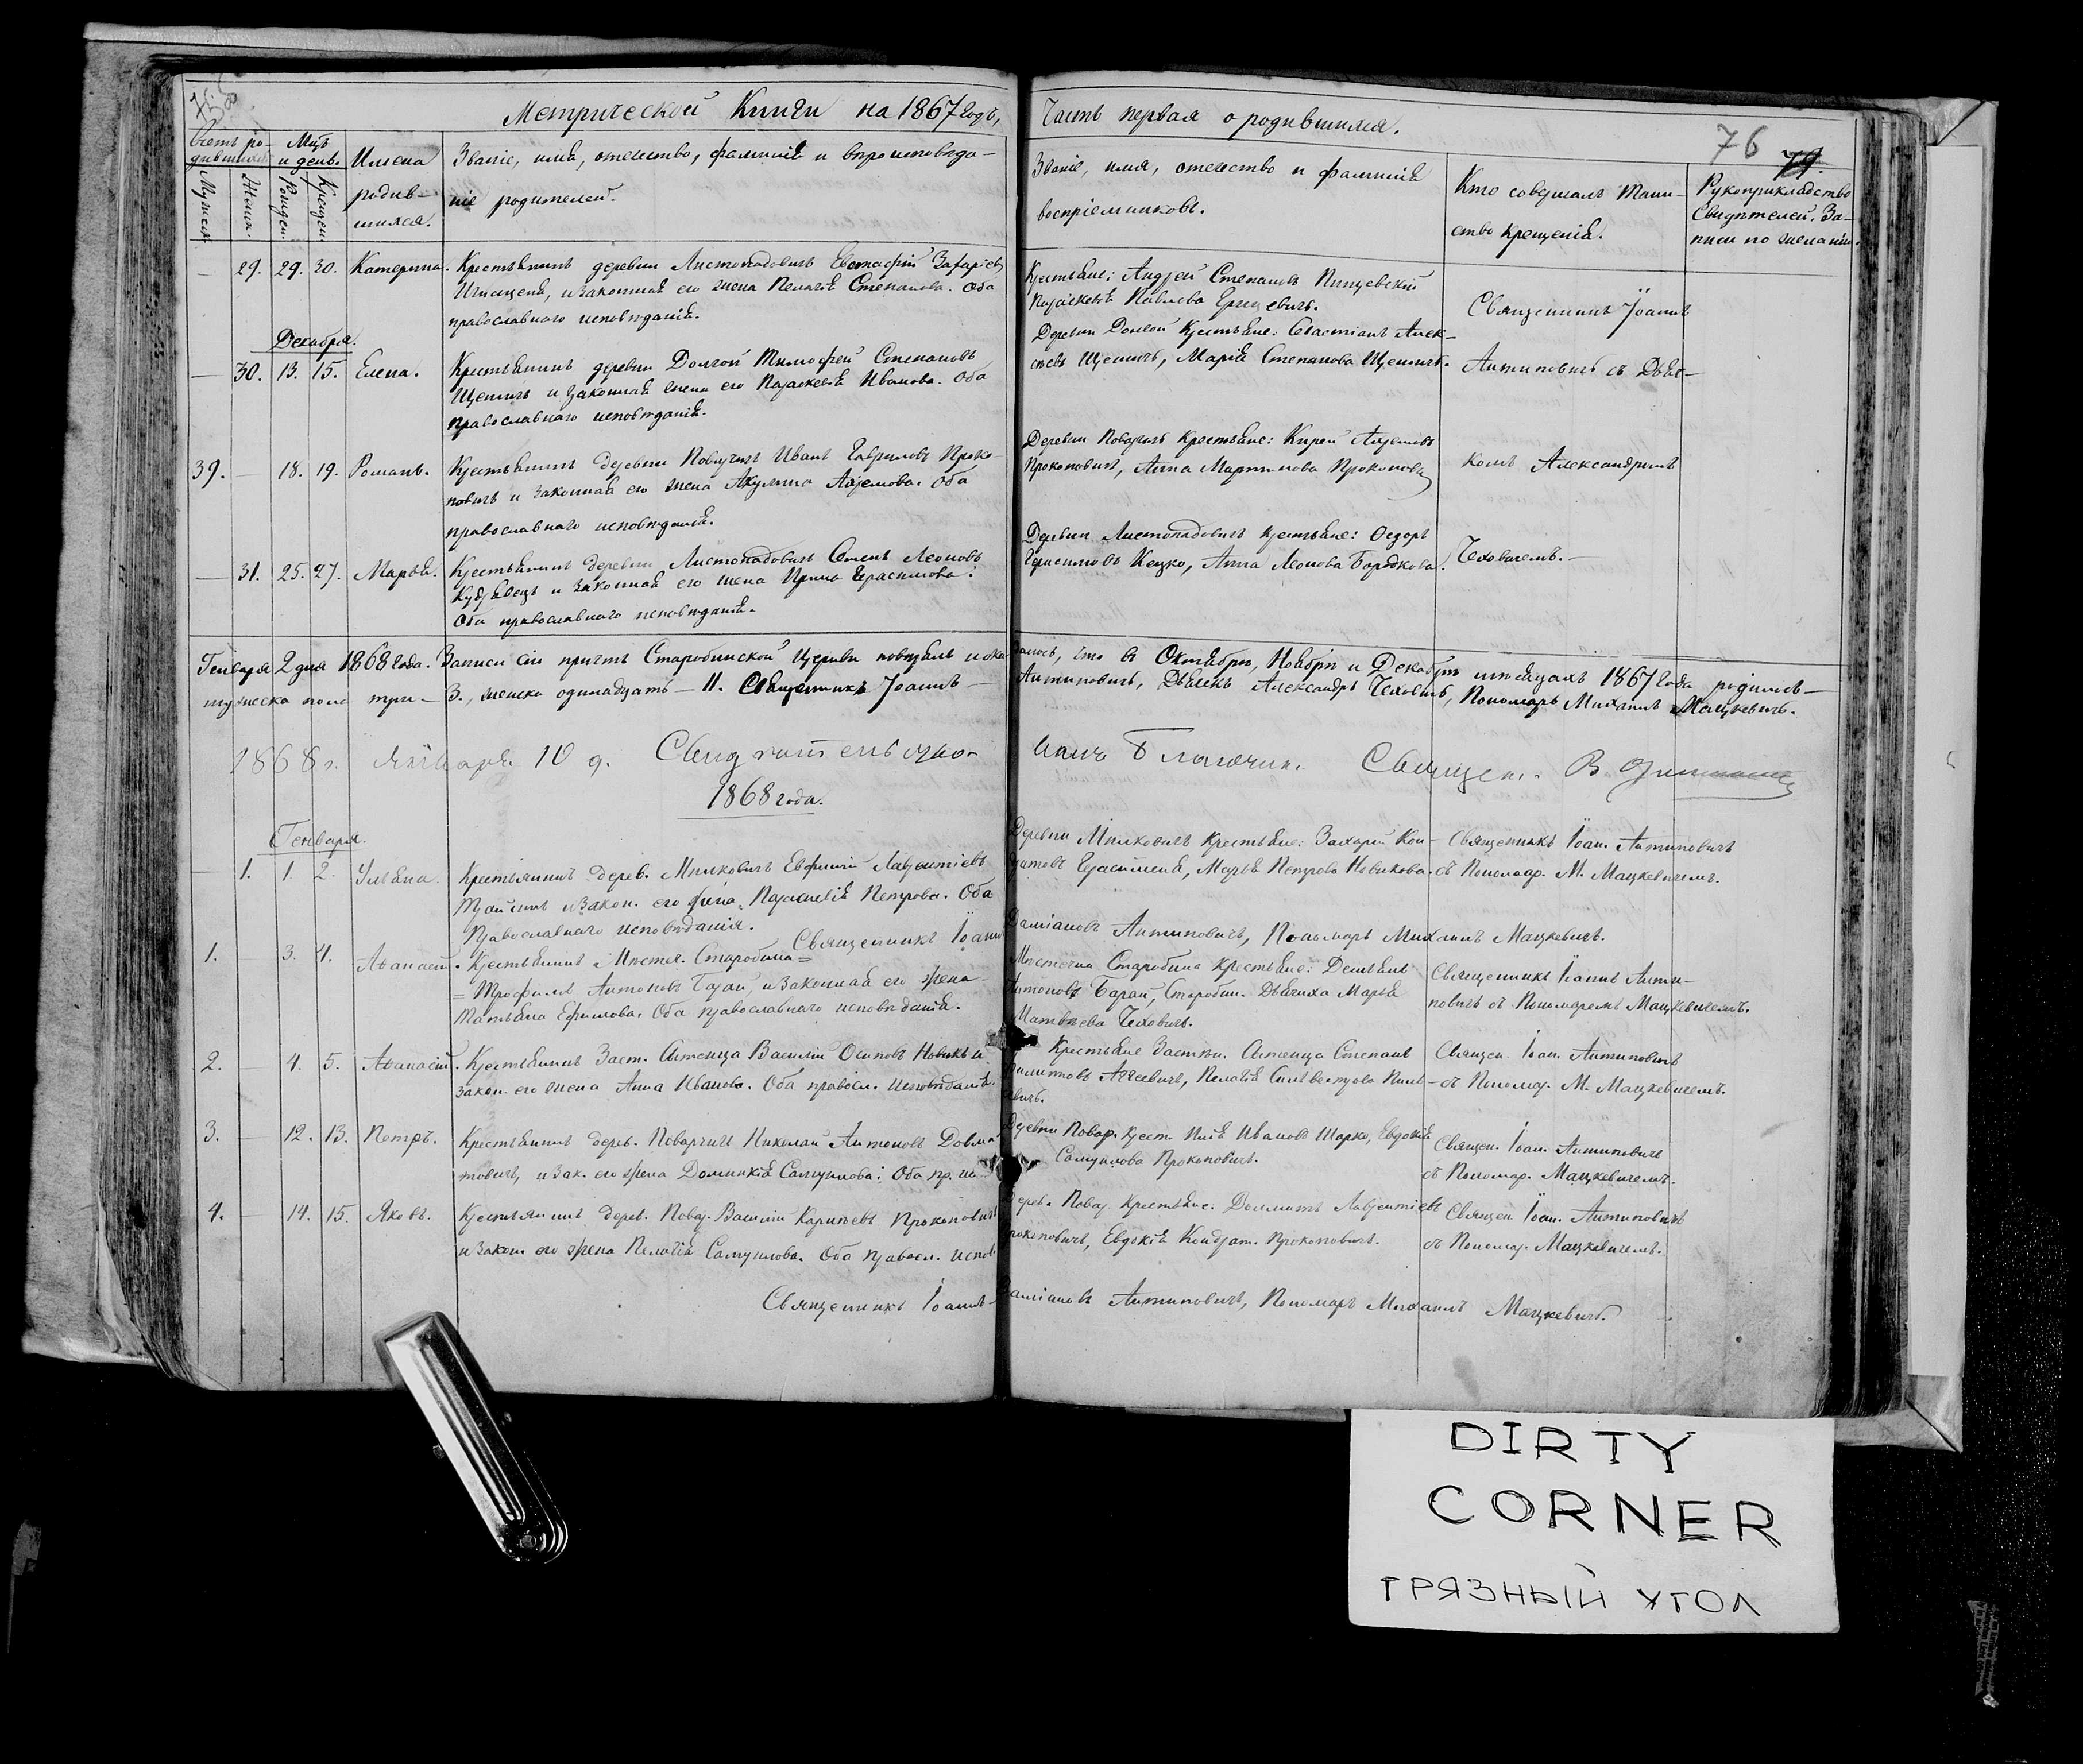 Метрической Книги на 1867 годъ,
Часть первая о родившихся.
76
Счетъ ро-
дившихся
Мцъ
и день.
Мужеск.
Женск.
Рожден.
Крещен.
Имена
родив-
шихся.
Званіе, имя, отечество, фамилія и вѣроисповѣда-
ніе родителей.
Званіе, имя, отечество и фамилія
воспріемниковъ.
Кто совершалъ таин-
ство крещенія.
Рукоприкладство
Свидѣтелей. За-
писи по желанію.
— 29. 29. 30. Катерина. Крестьянинъ деревни Листопадовичъ Евстафій Захаріевъ
и законная его жена Пелагія Степанова. Оба
православнаго исповѣданія.
Крестьяне: Андрей Степановъ
Параскевія Павлова
Священникъ Іоаннъ
Декабря.
— 30. 13. 15. Елена. Крестьянинъ деревни Долгой Тимофей Степановъ
и законная жена его Параскевія Иванова. Оба
православнаго исповѣданія.
Деревни Долгой Крестьяне: Севастіанъ Алек-
сѣевъ Марія Степанова
Антиповичъ съ Дьяч-
39. — 18. 19. Романъ. Крестьянинъ деревни Поварчичъ Иванъ Гавриловъ Проко-
повичъ и законная его жена Акулина Артемова. Оба
православнаго исповѣданія.
Деревни Поварчичъ Крестьяне:
Прокоповичъ, Анна Мартинова Прокоповичъ
комъ Александромъ
— 31. 25. 27. Марья. Крестьянинъ деревни Листопадовичъ Семенъ Леоновъ
Кудравецъ и законная его жена Ирина Герасимова:
Оба православнаго исповѣданія.
Деревни Листопадовичъ крестьяне: Ѳедоръ
Герасимовъ Кецко, Анна Леонова
Чеховичемъ.—
Генваря 2 дня 1868 года. Записи сіи причтъ Старобинской Церкви повѣрялъ и ока-
залось, что въ Октябрѣ, Ноябрѣ и Декабрѣ мѣсяцахъ 1867 года родилось—
мужеска пола три — 3., женска одинадцать — 11. Священникъ Іоаннъ —
Антиповичъ, Дьячекъ Александръ Чеховичъ, Пономарь Михаилъ Мацкевичъ.
1868 г. Января 10 д. Свидѣтельство-
Благочин. Священ. В.
1868 года.
Генваря.
— 1. 1. 2. Ульяна. Крестьянинъ дерев. Милковичъ Евфимій Лаврентіевъ
и закон. его жена Параскевія Петрова. Оба
Православнаго исповѣданія.
Деревни Милковичъ крестьяне: Захарій Кон-
дратовъ Марья Петрова Новикова.
Священникъ Іоан. Антиповичъ
съ Пономар. М. Мацкевичемъ.
Священникъ Іоаннъ
Даміановъ Антиповичъ, Пономарь Михаилъ Мацкевичъ.
1. 3. 4. Аѳанасій. Крестьянинъ Мѣстеч. Старобина=
=Трофимъ Антоновъ Баран, и законная его жена
Татьяна Ефимова. Оба православнаго исповѣданія.
Мѣстечка Старобина крестьяне: Демьянъ
Антоновъ Баран, Старобин. Дьячиха Марья
Матвѣева Чеховичъ.
Священникъ Іоаннъ Анти-
повичъ съ Пономаремъ Мацкевичемъ.
2. 4. 5. Аѳанасій. Крестьянинъ Заст. Василій Осиповъ Новикъ и
закон. его жена Анна Иванова. Оба правосл. исповѣданія.
Крестьяне Застѣн. Степанъ
Пелагія Сильвестрова
Священ. Іоан. Антиповичъ
съ Пономар. М. Мацкевичемъ.
3. — 12. 13. Петръ. Крестьянинъ дерев. Поварчичъ Николай Антоновъ Довна-
товичъ, и зак. его жена Доминикія Самуилова: Оба пр. ис
Деревни Повар. крест. Илія Ивановъ Шарко, Евдокія
Самуилова Прокоповичъ.
Священ. Іоан. Антиповичъ
съ Пономар. Мацкевичемъ.
4. — 14. 15. Яковъ. Крестьянинъ дерев. Повар. Василій Прокоповичъ
и закон. его жена Пелагія Самуилова. Оба правосл. испов.
Дерев. Повар. Крестьяне. Лаврентіевъ
Прокоповичъ, Евдокія Кондрат. Прокоповичъ.
Священ. Іоан. Антиповичъ
съ Пономар. Мацкевичемъ.
Священникъ Іоаннъ—
Даміановъ Антиповичъ, Пономарь Михаилъ Мацкевичъ.
DIRTY
CORNER
ГРЯЗНЫЙ УГОЛ